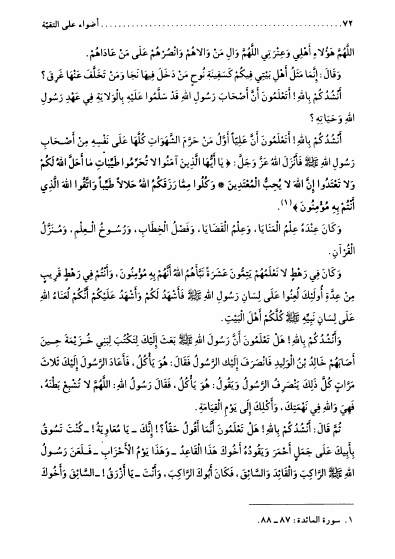 ٧٢ ........ أضواء على التقيّة
اللَّهُمَّ هَؤُلَاءِ أَهْلِي وَعِتْرَتِي اللَّهُمَّ وَالِ مَنْ وَالَاهُمْ وَانْصُرْهُمْ عَلَى مَنْ عَادَاهُمْ.
وَقَالَ: إِنَّمَا مَثَلُ أَهْلِ بَيْتِي فِيكُمْ كَسَفِينَةِ نُوحٍ مَنْ دَخَلَ فِيهَا نَجَا وَمَنْ تَخَلَّفَ عَنْهَا غَرِقَ؟
أَنْشُدُكُمْ بِاللهِ! أَتَعْلَمُونَ أَنَّ أَصْحَابَ رَسُولِ اللهِ قَدْ سَلَّمُوا عَلَيْهِ بِالْوَلَايَةِ فِي عَهْدِ رَسُولِ
اللهِ وَحَيَاتِهِ؟
أَنْشُدُكُمْ بِاللهِ! أَتَعْلَمُونَ أَنَّ عَلِيّاً أَوَّلُ مَنْ حَرَّمَ الشَّهَوَاتِ كُلَّهَا عَلَى نَفْسِهِ مِنْ أَصْحَابِ
رَسُولِ اللهِ ﷺ فَأَنْزَلَ اللهُ عَزَّ وَجَلَّ: ﴿يَا أَيُّهَا الَّذِينَ آمَنُوا لَا تُحَرِّمُوا طَيِّبَاتِ مَا أَحَلَّ اللهُ لَكُمْ
وَلَا تَعْتَدُوا إِنَّ اللهَ لَا يُحِبُّ الْمُعْتَدِينَ * وَكُلُوا مِمَّا رَزَقَكُمُ اللهُ حَلَالاً طَيِّباً وَاتَّقُوا اللهَ الَّذِي
أَنْتُمْ بِهِ مُؤْمِنُونَ﴾(١).
وَكَانَ عِنْدَهُ عِلْمُ الْمَنَايَا، وَعِلْمُ الْقَضَايَا، وَفَصْلُ الْخِطَابِ، وَرُسُوخُ الْعِلْمِ، وَمُنَزَّلُ
الْقُرْآنِ.
وَكَانَ فِي رَهْطٍ لَا نَعْلَمُهُمْ يَتِمُّونَ عَشَرَةً نَبَّأَهُمُ اللهُ أَنَّهُمْ بِهِ مُؤْمِنُونَ، وَأَنْتُمْ فِي رَهْطٍ قَرِيبٍ
مِنْ عِدَّةِ أُولَئِكَ لُعِنُوا عَلَى لِسَانِ رَسُولِ اللهِ ﷺ فَأَشْهَدُ لَكُمْ وَأَشْهَدُ عَلَيْكُمْ أَنَّكُمْ لُعَنَاءُ اللهِ
عَلَى لِسَانِ نَبِيِّهِ ﷺ كُلُّكُمْ أَهْلَ الْبَيْتِ.
وَأَنْشُدُكُمْ بِاللهِ! هَلْ تَعْلَمُونَ أَنَّ رَسُولَ اللهِ ﷺ بَعَثَ إِلَيْكَ لِتَكْتُبَ لِبَنِي خُزَيْمَةَ حِينَ
أَصَابَهُمْ خَالِدُ بْنُ الْوَلِيدِ فَانْصَرَفَ إِلَيْكَ الرَّسُولُ فَقَالَ: هُوَ يَأْكُلُ، فَأَعَادَ الرَّسُولَ إِلَيْكَ ثَلَاثَ
مَرَّاتٍ كُلَّ ذَلِكَ يَنْصَرِفُ الرَّسُولُ وَيَقُولُ: هُوَ يَأْكُلُ، فَقَالَ رَسُولُ اللهِ: اللَّهُمَّ لَا تُشْبِعْ بَطْنَهُ،
فَهِيَ وَاللهِ فِي نَهْمَتِكَ، وَأَكْلِكَ إِلَى يَوْمِ الْقِيَامَةِ.
ثُمَّ قَالَ: أَنْشُدُكُمْ بِاللهِ! هَلْ تَعْلَمُونَ أَنَّمَا أَقُولُ حَقّاً؟! إِنَّكَ ـ يَا مُعَاوِيَةُ! ـ كُنْتَ تَسُوقُ
بِأَبِيكَ عَلَى جَمَلٍ أَحْمَرَ وَيَقُودُهُ أَخُوكَ هَذَا الْقَاعِدُ ـ وَهَذَا يَوْمُ الْأَحْزَابِ ـ فَلَعَنَ رَسُولُ
اللهِ ﷺ الرَّاكِبَ وَالْقَائِدَ وَالسَّائِقَ، فَكَانَ أَبُوكَ الرَّاكِبَ، وَأَنْتَ ـ يَا أَزْرَقُ! ـ السَّائِقَ وَأَخُوكَ
١. سورة المائدة: ٨٧ ـ ٨٨.